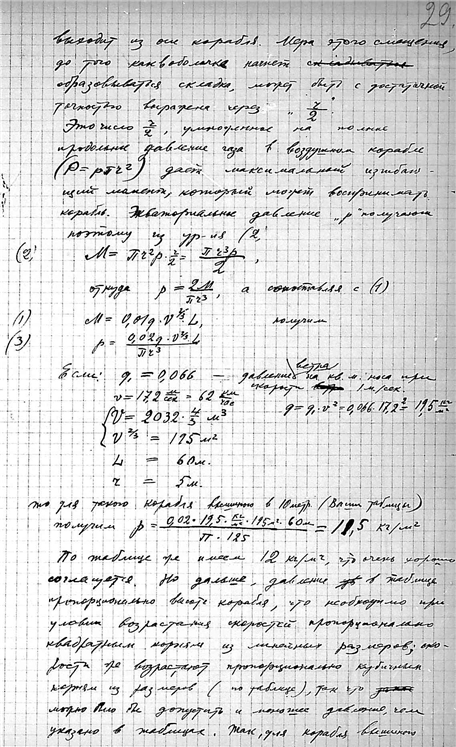 29.
выходит из оси корабля. Мера этого смещения,
до того как в оболочке начнет складываться
образовываться складка, может быть с достаточной
точностью выражена через „ r/2 “.
Это число r/2, умноженное на полное
продольное давление газа в воздушном корабле
(P = pπr²) дает максимальный изгибаю-
щий момент, который может воспринимать
корабль. Экваториальное давление „p“ получаем
поэтому из ур-ля (2,
(2, M = πr²p · r/2 = πr³p/2 ,
откуда p = 2M/πr³ , а сопоставляя с (1)
(1) M = 0,01q · v⅔ L, получим
(3) p = 0,02q · v⅔ L/πr³
Если: q₁ = 0,066 — давление ветра на кв. м. носа при
скорости 1 м/сек.
v = 17,2 м/сек = 62 км/час q = q₁ · v² = 0,066 · 17,2² = 19,5 кг/м²
V = 2032 · 4/3 м³
V⅔ = 195 м²
L = 60 м.
r = 5 м.
то для такого корабля вышиною в 10 метр. (Ваши таблицы)
получим p = 0,02 · 19,5 · кг/м² · 195 м² · 60 м / π · 125 = 11,5 кг/м²
По таблице же имеем 12 кг/м², что очень хорошо
соглашается. Но дальше, давление в таблице
пропорционально высоте корабля, что необходимо при
условии возрастания скоростей пропорционально
квадратным корням из линейных размеров; ско-
рости же возрастают пропорционально кубичным
корням из размеров (по таблице), так что
можно было бы допустить и меньшее давление, чем
указано в таблицах. Так, для корабля вышиною